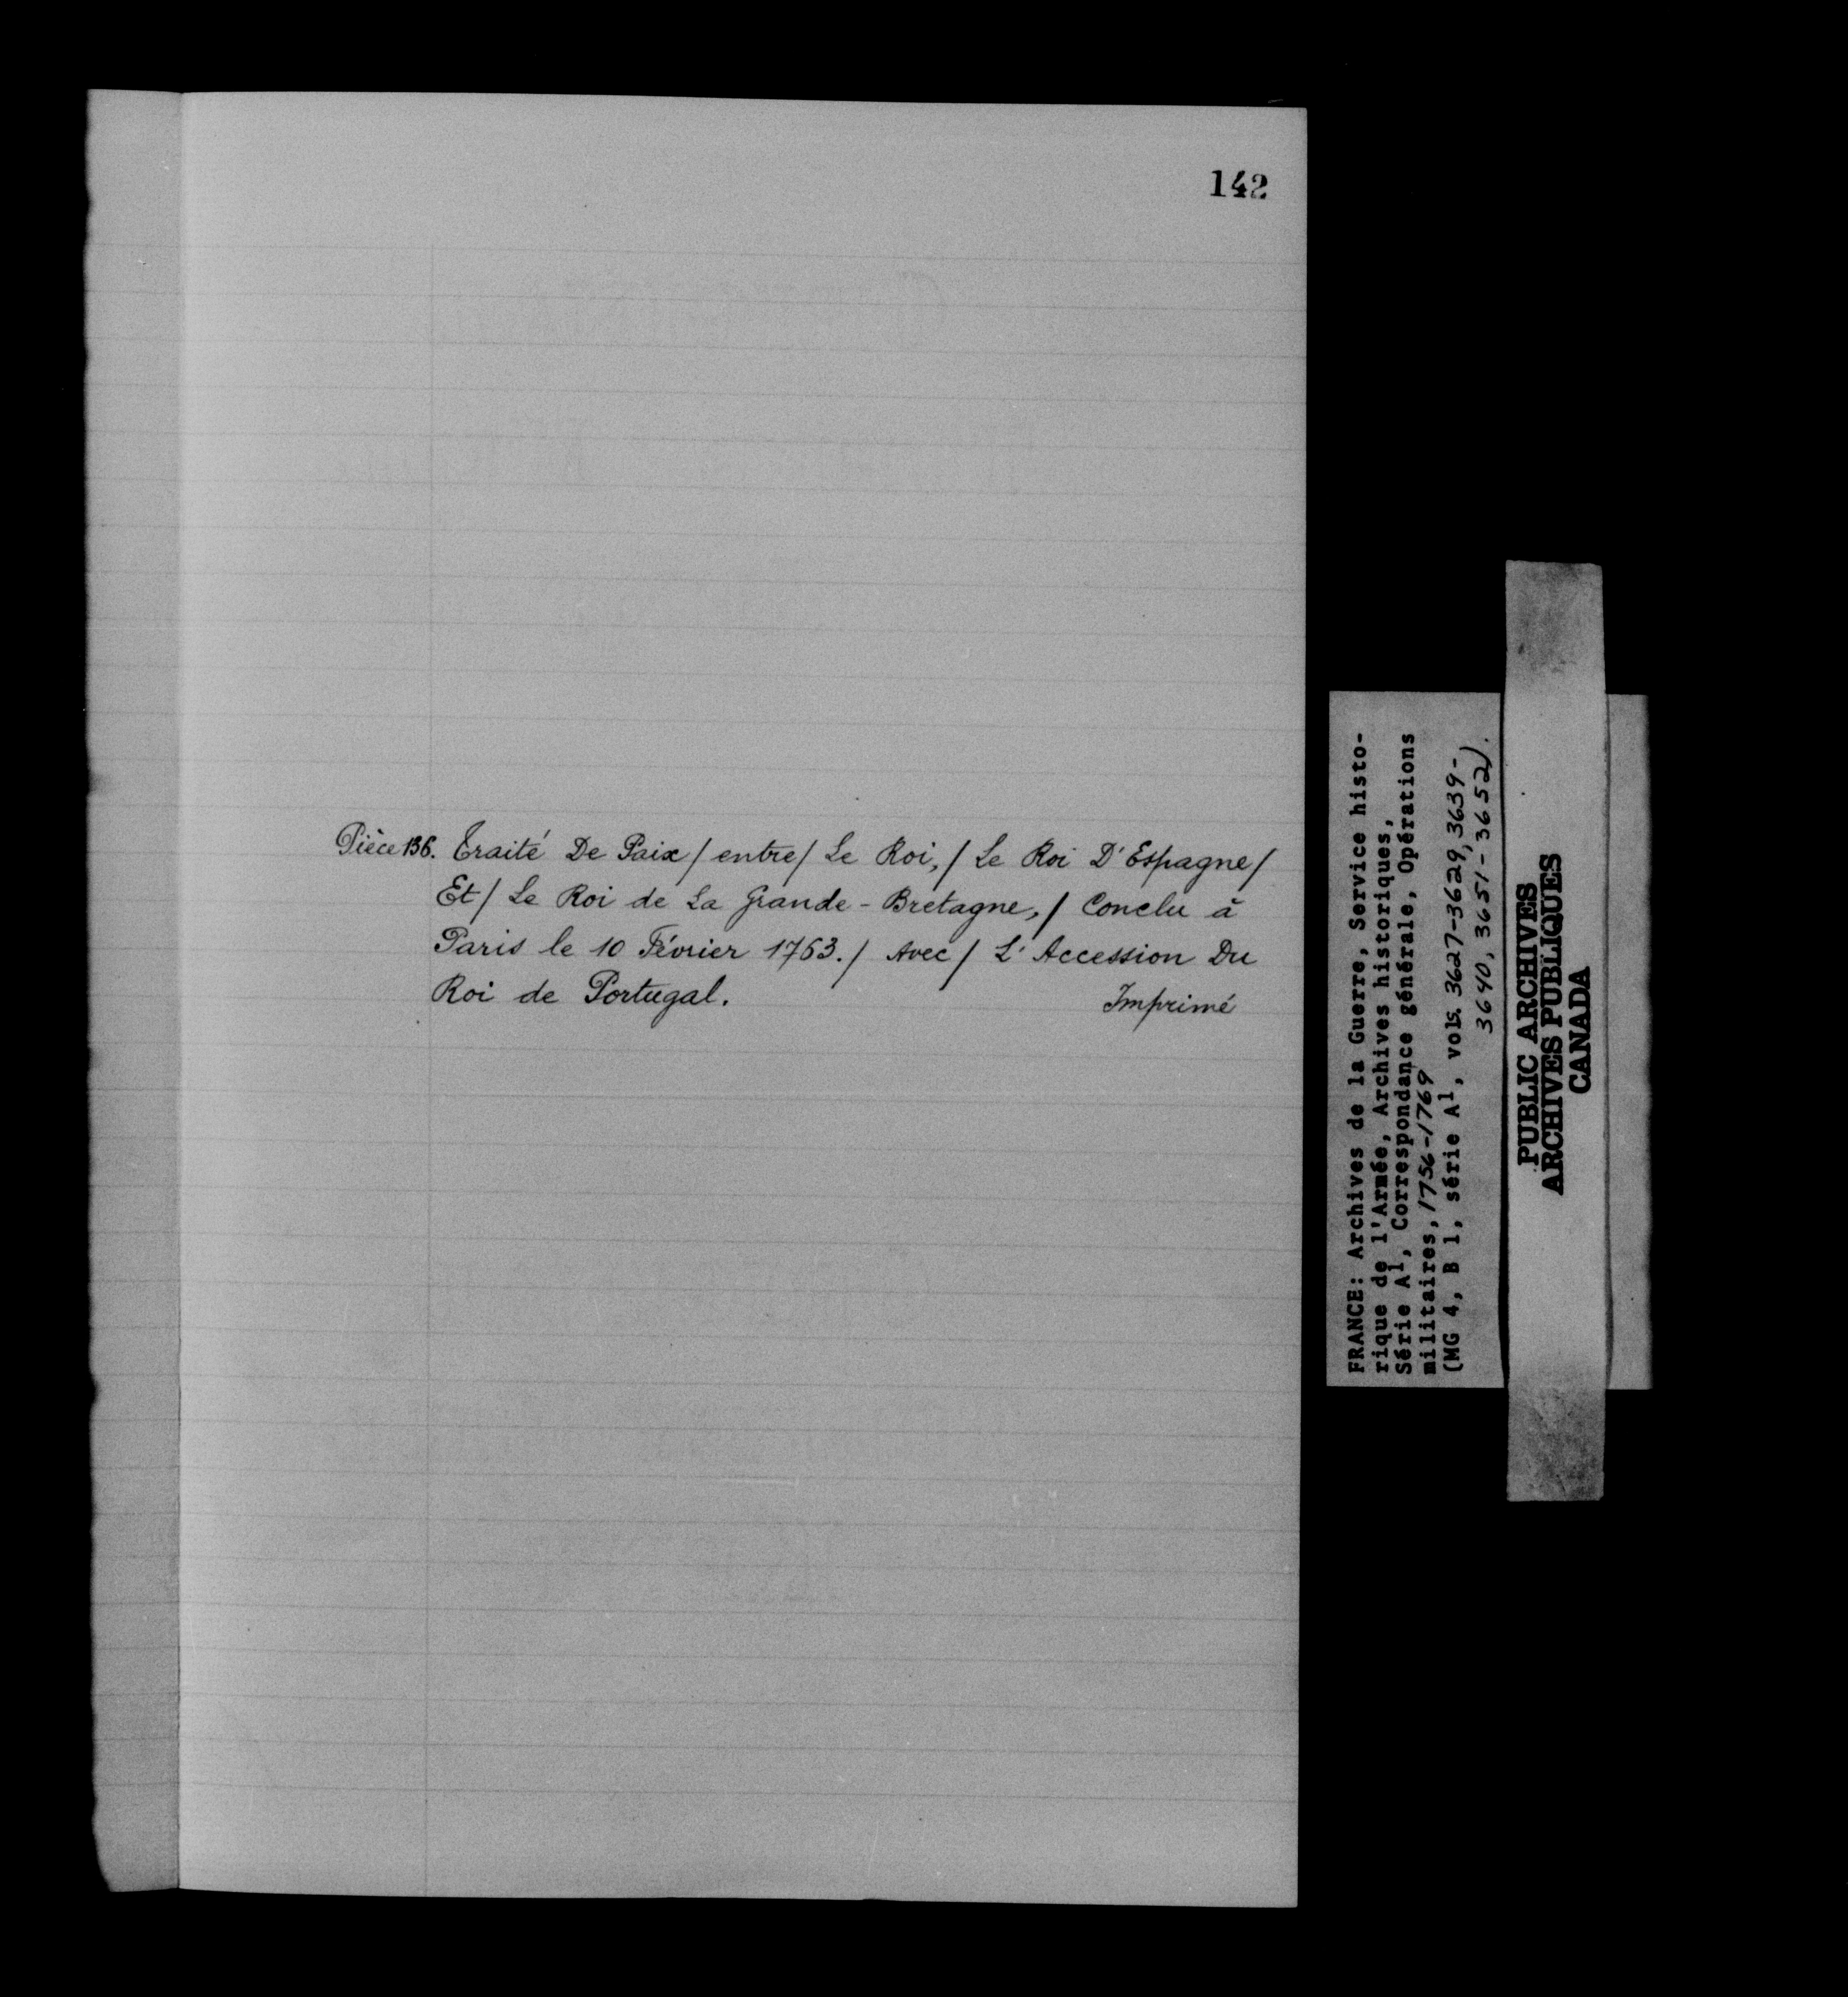 142
Pièce 136. Traité De Paix / entre / Le Roi, / Le Roi D'Espagne /
Et / Le Roi de La Grande-Bretagne, / Conclu à
Paris le 10 Février 1763. / Avec / L'Accession Du
Roi de Portugal. Imprimé
FRANCE: Archives de la Guerre, Service histo-
rique de l'Armée, Archives historiques,
Série A1, Correspondance générale, Opérations
militaires, 1756-1769
(MG 4, B 1, série A1, vols. 3627-3629, 3639-
3640, 3651-3652).
PUBLIC ARCHIVES
ARCHIVES PUBLIQUES
CANADA